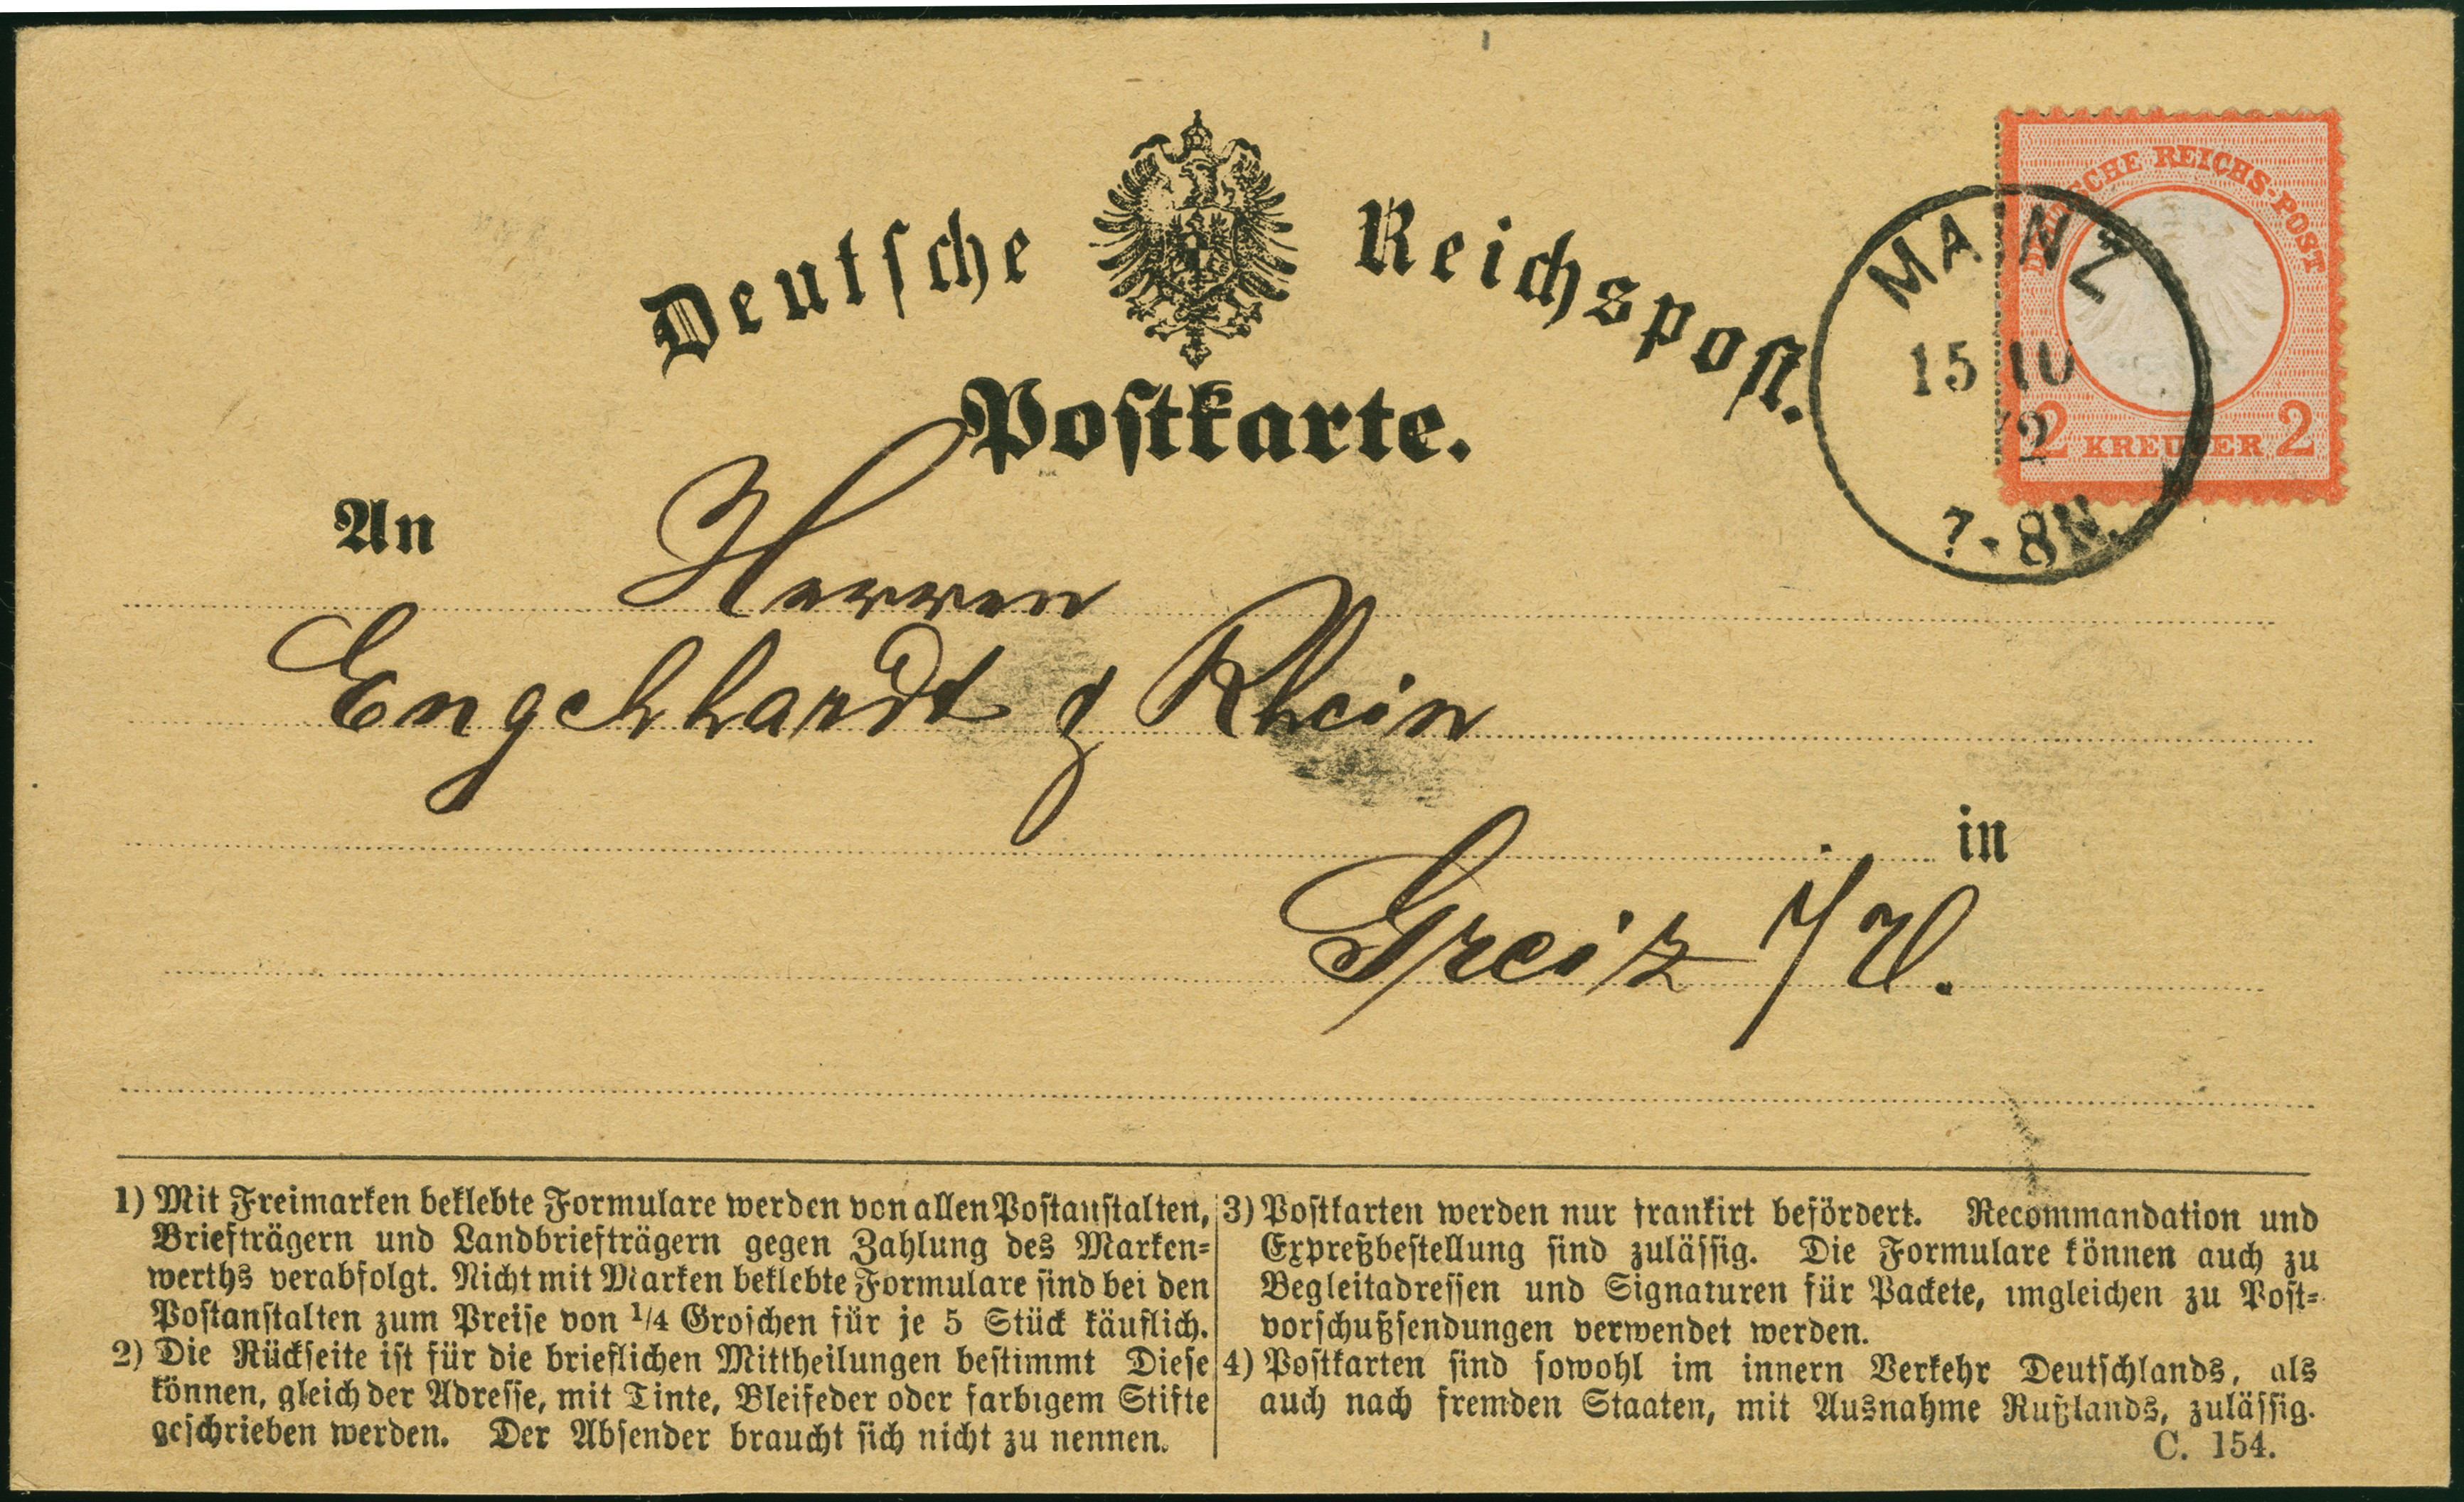 Deutsche Reichspost.
Postkarte.
DEUTSCHE REICHS-POST
2 KREUZER 2
MAINZ
15 10
72
7-8N.
An
Herren
Engelhardt & Rhein
in
Greiz i/V.
1) Mit Freimarken beklebte Formulare werden von allen Postanstalten,
Briefträgern und Landbriefträgern gegen Zahlung des Marken-
werths verabfolgt. Nicht mit Marken beklebte Formulare sind bei den
Postanstalten zum Preise von 1/4 Groschen für je 5 Stück käuflich.
2) Die Rückseite ist für die brieflichen Mittheilungen bestimmt Diese
können, gleich der Adresse, mit Tinte, Bleifeder oder farbigem Stifte
geschrieben werden. Der Absender braucht sich nicht zu nennen.
3) Postkarten werden nur frankirt befördert. Recommandation und
Expreßbestellung sind zulässig. Die Formulare können auch zu
Begleitadressen und Signaturen für Packete, imgleichen zu Post-
vorschußsendungen verwendet werden.
4) Postkarten sind sowohl im innern Verkehr Deutschlands, als
auch nach fremden Staaten, mit Ausnahme Rußlands, zulässig.
C. 154.